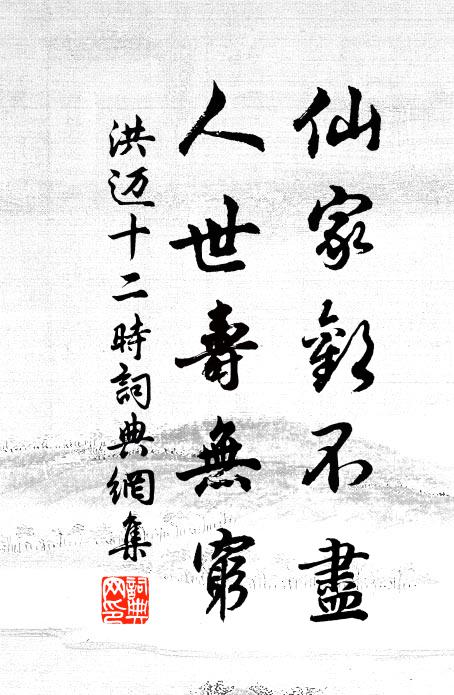 仙家歡不盡
人世壽無窮
洪迈十二時詞典網集
詞典网印